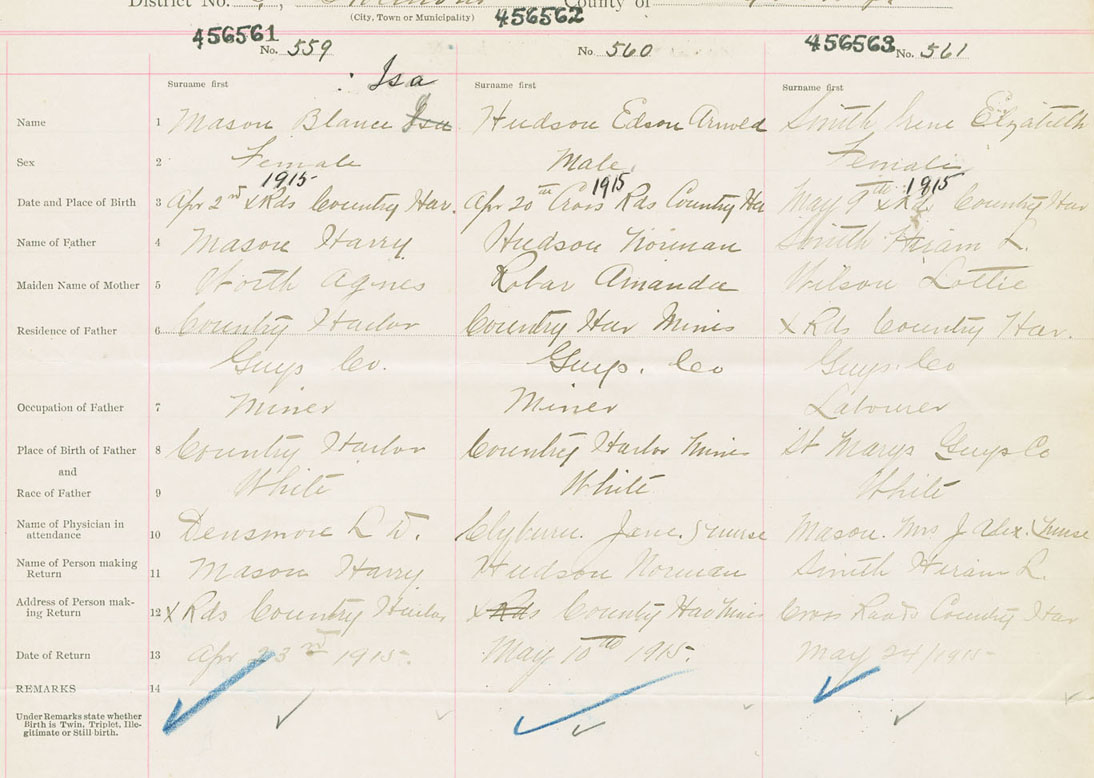 District No. County of
(City, Town or Municipality)
456561 456562 456563
No. 559 No. 560 No. 561
Isa
Surname first Surname first Surname first
Name 1 Mason Blance Isa Hudson Edson Arnold Smith Irene Elzabeth
Sex 2 Female Male Female
1915 1915 1915
Date and Place of Birth 3 Apr 2nd x Rds Country Har. Apr 20th Cross Rds Country Har May 9th x Rd Country Har
Name of Father 4 Mason Harry Hudson Norman Smith Hiram L.
Maiden Name of Mother 5 Worth Agnes Robar Amanda Wilson Lottie
Residence of Father 6 Country Harbor Country Har Mines x Rds Country Har.
Guys Co. Guys. Co Guys. Co
Occupation of Father 7 Miner Miner Labourer
Place of Birth of Father 8 Country Harbor Country Harbor Mines St Marys Guys Co
and
Race of Father 9 White White White
Name of Physician in
attendance 10 Densmore L D. Clyburn. Jane. Nurse Mason. Mrs J Alex. Nurse
Name of Person making
Return 11 Mason Harry Hudson Norman Smith Hiram L.
Address of Person mak-
ing Return 12 x Rds Country Harbor x Rds Country Har Mines Cross Roads Country Har
Date of Return 13 Apr 23rd 1915. May 10th 1915. May 24/1915
REMARKS 14
Under Remarks state whether
Birth is Twin, Triplet, Ille-
gitimate or Still-birth.